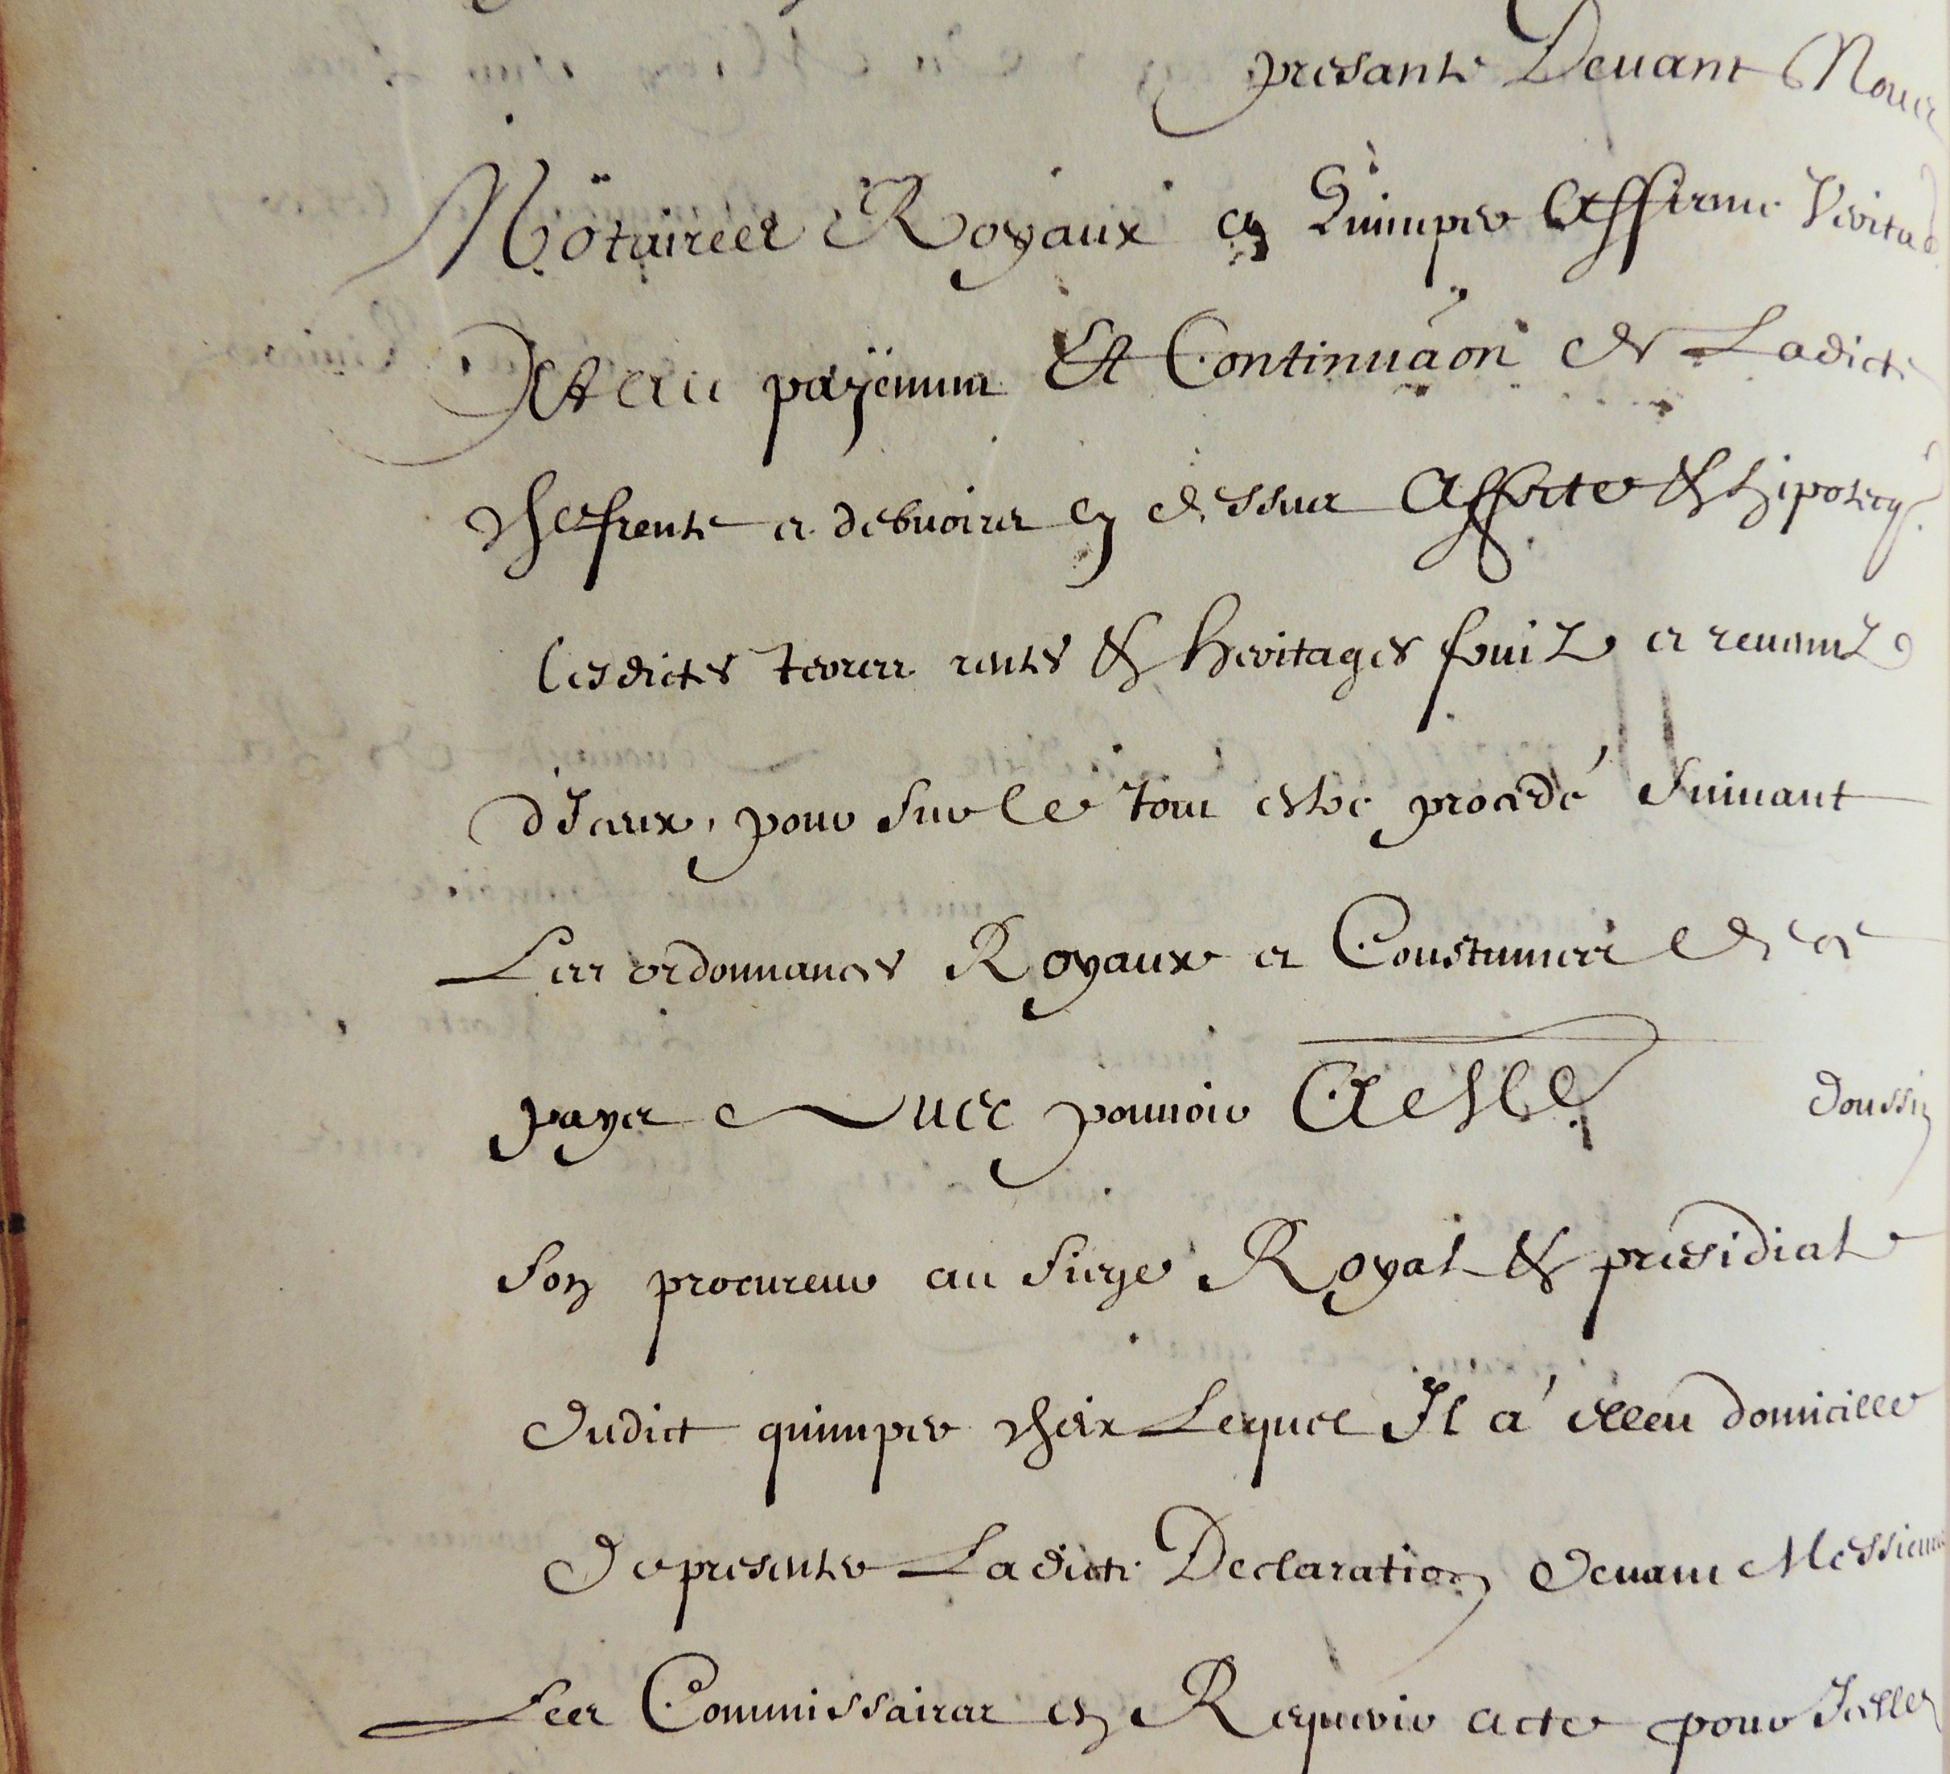 presante Devant Nous
Notairees Royaux en Quimper Affirme Veritab
Et au payement Et Continuâon de Ladicte
cheffrente et debvoirs cy dessus Affecte & hipotecq
Lesdictes terres rentes & heritages fruitz et revenuz
d'Iceux, pour sur le tout estre procedé suivant
Les ordonnances Royaux et Coustumes de ce
payes Avec pouvoir A
doussin
son procureur au siege Royal & presidial
dudict quimper cheix Lequel Il a' elleu domicille
De presenter Ladicte Declaration devant Messieurs
Les Commissaires en Requerir acte pour Icelle